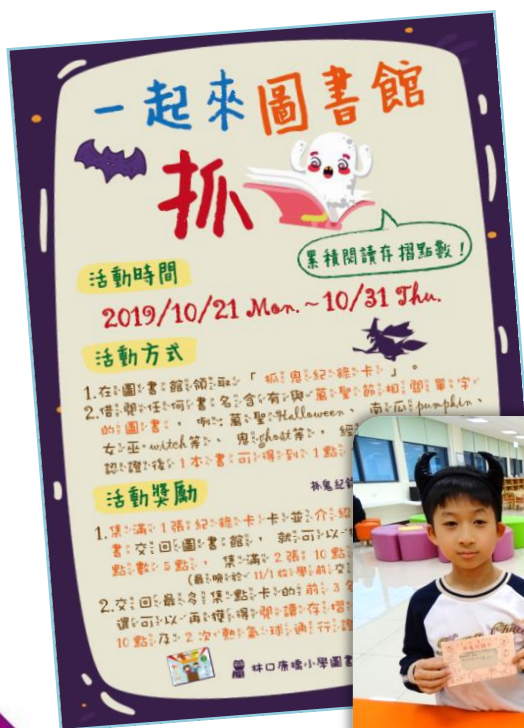 一起來圖書館
抓
累積閱讀存摺點數！
活動時間
2019/10/21 Mon. ~ 10/31 Thu.
活動方式
1.在圖書館領取「抓鬼紀錄卡」。
2.借閱任何書名含有與萬聖節相關單字
的圖書，例：萬聖Halloween、南瓜pumpkin、
女巫witch等、鬼ghost等，經
認證後1本書可得到1點
抓鬼紀錄
活動獎勵
1.集滿1張紀錄卡卡並介紹
書交回圖書館，就可以
點數5點，集滿2張10點
(最晚於11/1放學前交
2.交回最多集點卡的前3名
還可以再獲得閱讀存摺
10點及2次熱氣球通行證
林口康橋小學圖書